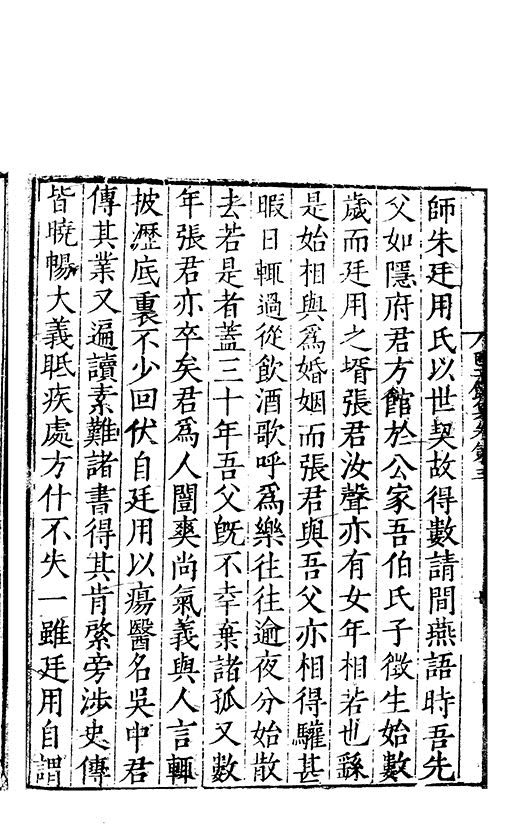 師朱廷用氏以世契故得數請間燕語時吾先
父如隱府君方館於公家吾伯氏子徵生始數
歲而廷用之壻張君汝聲亦有女年相若也繇
是始相與爲婚姻而張君與吾父亦相得驩甚
暇日輒過從飲酒歌呼爲樂往往逾夜分始散
去若是者蓋三十年吾父旣不幸棄諸孤又數
年張君亦卒矣君爲人闓爽尚氣義與人言輒
披瀝底裏不少回伏自廷用以瘍醫名吳中君
傳其業又遍讀素難諸書得其肯綮旁涉史傳
皆曉暢大義眡疾處方什不失一雖廷用自謂